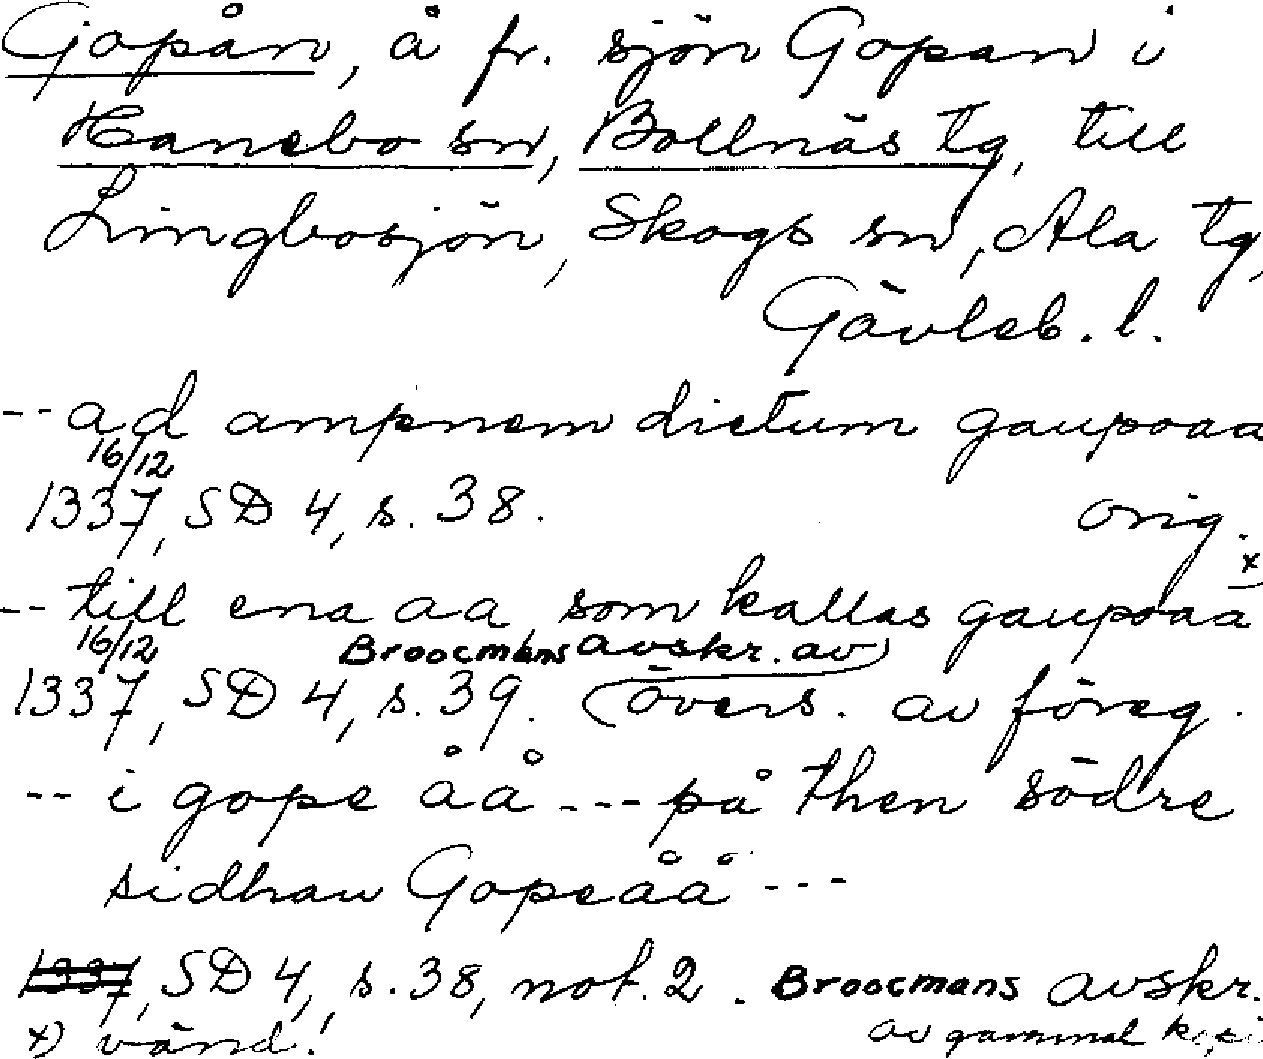 Gopån, å fr. sjön Gopan i
Hanebo sn, Bollnäs tg, till
Lingbosjön, Skogs sn, Ala tg,
Gävleb. l.
-- ad ampnem dictum gaupoaa
16/12
1337, SD 4, s. 38. orig.
x
-- till ena aa som kallas gaupoaa
16/12 Broocmans avskr. av
1337, SD 4, s. 39. övers. av föreg.
-- i gope åå --- på then södre
sidhan Gopeåå ---
1337, SD 4, s. 38, not. 2. Broocmans avskr.
x) vänd! av gammal kopia